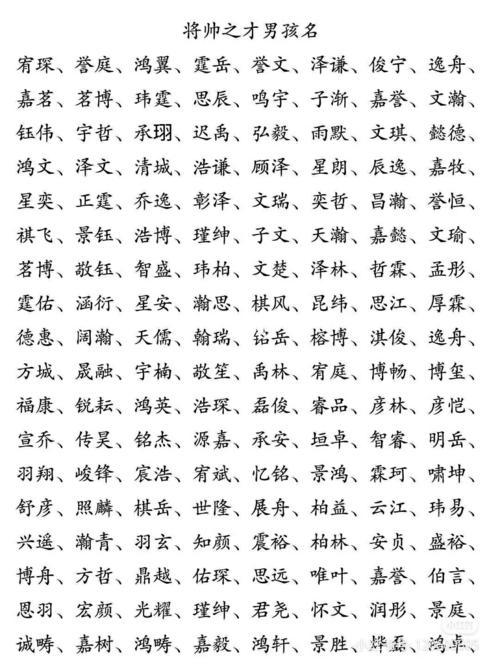 将帅之才男孩名
宥琛、誉庭、鸿翼、霆岳、誉文、泽谦、俊宁、逸舟、
嘉茗、茗博、玮霆、思辰、鸣宇、子渐、嘉誉、文瀚、
钰伟、宇哲、承珝、迟禹、弘毅、雨默、文琪、懿德、
鸿文、泽文、清城、浩谦、顾泽、星朗、辰逸、嘉牧、
星奕、正霆、乔逸、彰泽、文瑞、奕哲、昌瀚、誉恒、
祺飞、景钰、浩博、瑾绅、子文、天瀚、嘉懿、文瑜、
茗博、敬钰、智盛、玮柏、文楚、泽林、哲霖、孟彤、
霆佑、涵衍、星安、瀚思、棋风、昆纬、思江、厚霖、
德惠、阔瀚、天儒、翰瑞、岳、榕博、淇俊、逸舟、
方城、晟融、宇楠、敬笙、禹林、宥庭、博畅、博玺、
福康、锐耘、鸿英、浩琛、磊俊、睿品、彦林、彦恺、
宣乔、传昊、铭杰、源嘉、承安、垣卓、智睿、明岳、
羽翔、峻锋、宸浩、宥斌、忆铭、景鸿、霖珂、啸坤、
舒彦、照麟、棋岳、世隆、展舟、柏益、云江、玮易、
兴遥、瀚青、羽玄、知颜、震裕、柏林、安贞、盛裕、
博舟、方哲、鼎越、佑琛、思远、唯叶、嘉誉、伯言、
恩羽、宏颜、光耀、瑾绅、君尧、怀文、润彤、景庭、
诚畴、嘉树、鸿畴、嘉毅、鸿轩、景胜、岳、鸿卓